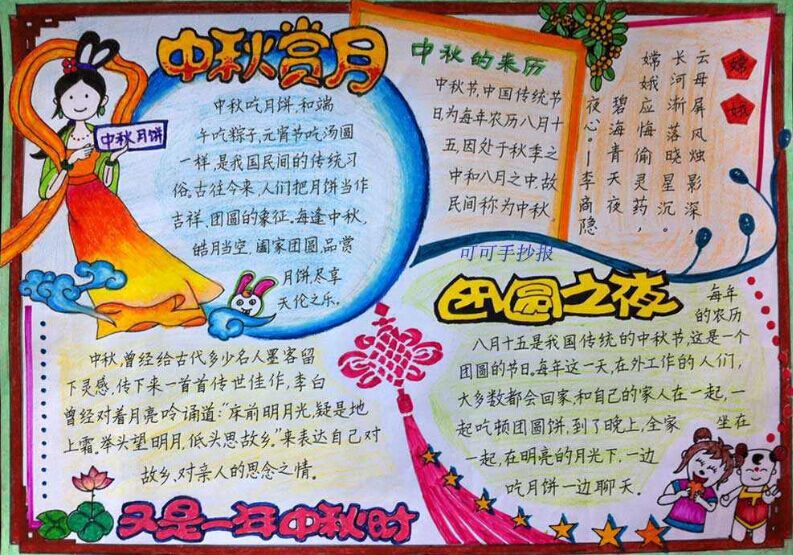 中秋赏月
中秋月饼
中秋吃月饼,和端
午吃粽子,元宵节吃汤圆
一样,是我国民间的传统习
俗。古往今来,人们把月饼当作
吉祥,团圆的象征,每逢中秋,
皓月当空,阖家团圆,品赏
月饼,尽享
天伦之乐。
中秋的来历
中秋节,中国传统节
日,为每年农历八月十
五,因处于秋季之
中和八月之中,故
民间称为中秋。
嫦娥
云母屏风烛影深,
长河渐落晓星沉。
嫦娥应悔偷灵药,
碧海青天夜
夜心。—李商隐
可可手抄报
团圆之夜
每年
的农历
八月十五是我国传统的中秋节,这是一个
团圆的节日,每年这一天,在外工作的人们,
大多数都会回家,和自己的家人在一起,一
起吃顿团圆饼,到了晚上,全家坐在
一起,在明亮的月光下,一边
吃月饼一边聊天。
中秋,曾经给古代多少名人墨客留
下灵感,传下来一首首传世佳作,李白
曾经对着月亮吟诵道:“床前明月光,疑是地
上霜,举头望明月,低头思故乡。”来表达自己对
故乡,对亲人的思念之情。
又是一年中秋时